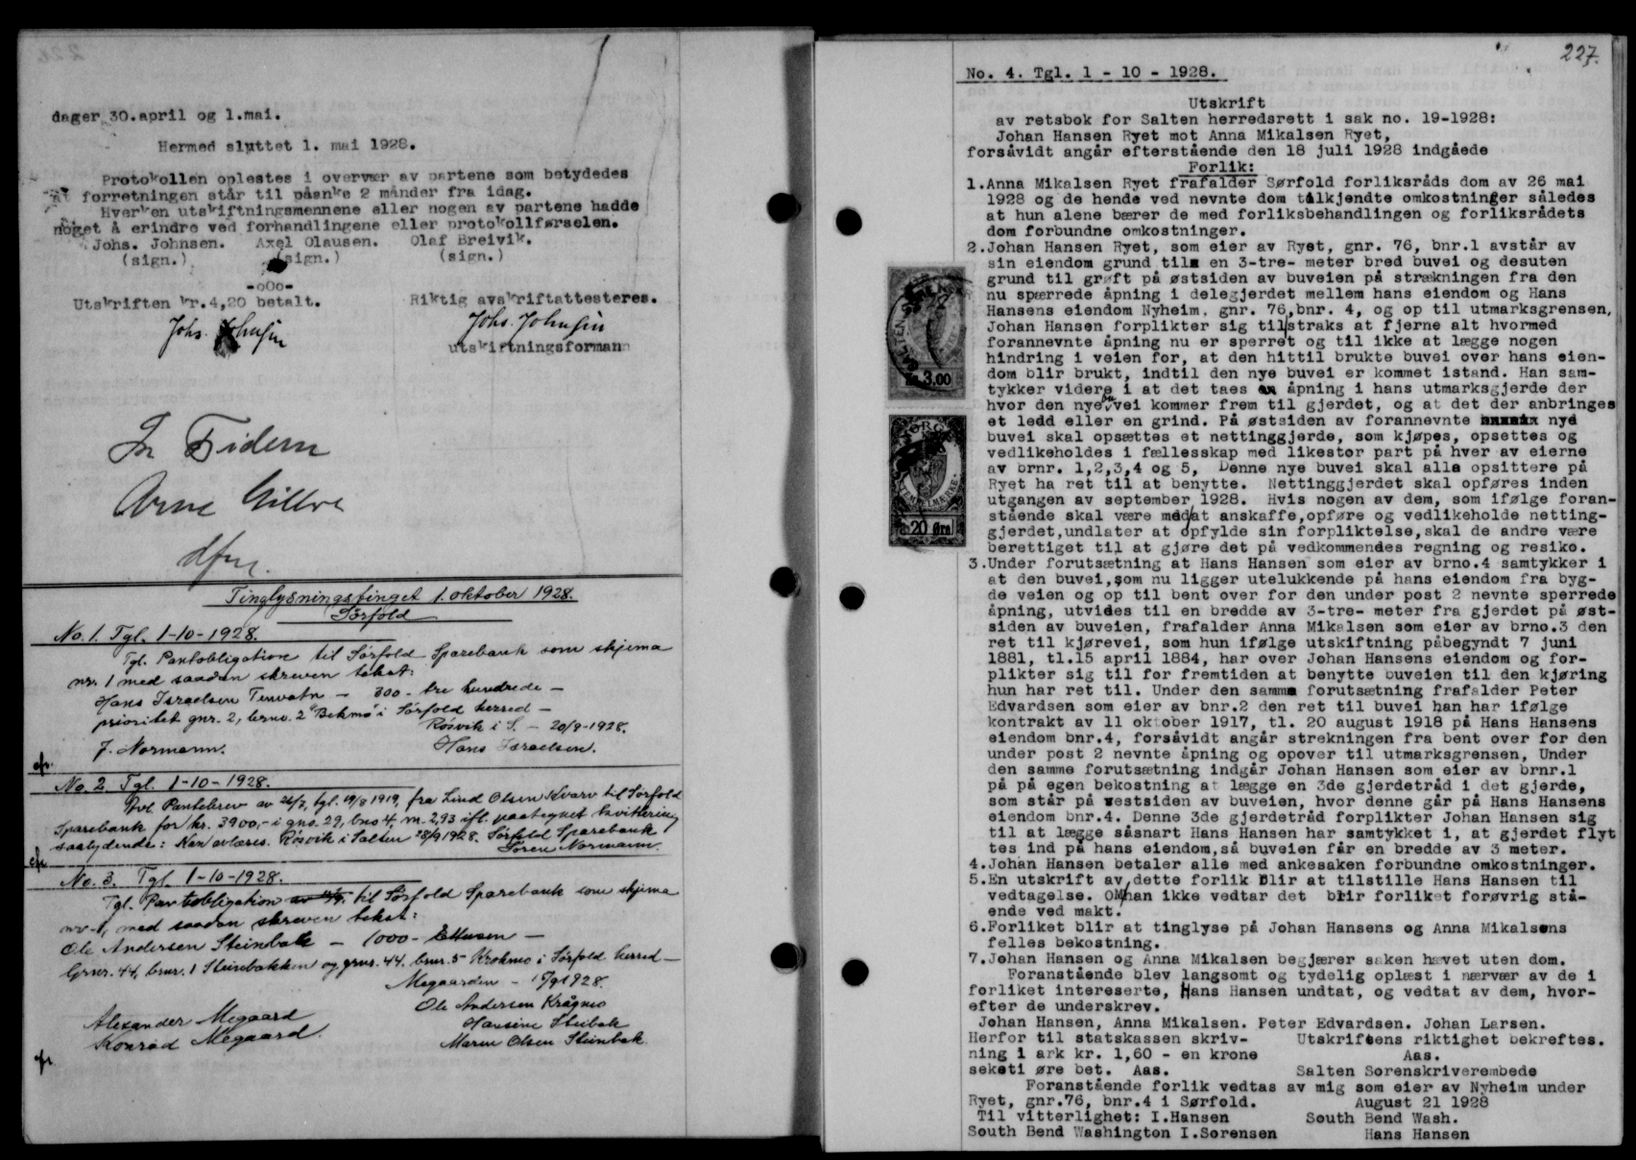 dager 30.april og 1.mai.
Hermed sluttet 1. mai 1928.
Protokollen oplestes i overvær av partene som betydedes
at forretningen står til påanke 2 månder fra idag.
Hverken utskiftningsmennene eller nogen av partene hadde
noget å erindre ved forhandlingene eller protokollførselen.
Johs. Johnsen. Axel Olausen. Olaf Breivik.
(sign.) (sign.) (sign.)
-oOo-
Utskriften kr.4,20 betalt. Riktig avskriftattesteres.
Johs. Johnsen Johs. Johnsen
utskiftningsformann
Arne
Tinglysningstinget 1. oktober 1928.
Sörfold
No. 1. Tgl. 1-10-1928.
Tgl. Pantobligation til Sörfold Sparebank som skjema
nr. 1 med saadan skreven tekst:
Hans Israelsen Tervatn - 300 - tre hundrede -
prioritet gnr. 2, brno. 2 "Bekmo" i Sörfold herred -
Rösvik i S. - 20/9-1928.
J. Normann. Hans Israelsen.
No. 2. Tgl. 1-10-1928.
Avl. Pantebrev av 26/7, tgl. 19/8 1919, fra Lind Olsen Kvarv til Sörfold
Sparebank for kr. 3900,- i gno. 29, bno 4, m. 2,93 ifl. paategnet kvittering
saalydende: Kan avlæses. Rösvik i Salten 28/9 1928. Sörfold Sparebank
Sören Normann.
No. 3. Tgl. 1-10-1928.
Tgl. Pantobligation til Sörfold Sparebank som skjema
nr. 1, med saadan skreven tekst:
Ole Andersen Steinbak - 1000 - Ettusen -
Grnr. 44, brnr. 1 Steinbakken og grnr. 44. brnr. 5 Krokmo i Sörfold herred -
Megaarden - 15/9 1928.
Ole Andersen Krågmo
Alexander Megaard Hansine Steibak
Konrad Megaard. Maren Olsen Steinbak.
227.
No. 4. Tgl. 1 - 10 - 1928.
Utskrift
av retsbok for Salten herredsrett i sak no. 19-1928:
Johan Hansen Ryet mot Anna Mikalsen Ryet,
forsåvidt angår efterstående den 18 juli 1928 indgåede
Forlik:
1.Anna Mikalsen Ryet frafalder Sørfold forliksråds dom av 26 mai
1928 og de hende ved nevnte dom tilkjendte omkostninger således
at hun alene bærer de med forliksbehandlingen og forliksrådets
dom forbundne omkostninger.
2.Johan Hansen Ryet, som eier av Ryet, gnr. 76, bnr.1 avstår av
sin eiendom grund til en 3-tre- meter bred buvei og desuten
grund til grøft på østsiden av buveien på strækningen fra den
nu spærrede åpning i delegjerdet mellem hans eiendom og Hans
Hansens eiendom Nyheim, gnr. 76,bnr. 4, og op til utmarksgrensen,
Johan Hansen forplikter sig til straks at fjerne alt hvormed
forannevnte åpning nu er sperret og til ikke at lægge nogen
hindring i veien for, at den hittil brukte buvei over hans eien-
dom blir brukt, indtil den nye buvei er kommet istand. Han sam-
tykker videre i at det taes en åpning i hans utmarksgjerde der
hvor den nye buvei kommer frem til gjerdet, og at det der anbringes
et ledd eller en grind. På østsiden av forannevnte nye
buvei skal opsættes et nettinggjerde, som kjøpes, opsettes og
vedlikeholdes i fællesskap med likestor part på hver av eierne
av brnr. 1,2,3,4 og 5, Denne nye buvei skal alle opsittere på
Ryet ha ret til at benytte. Nettinggjerdet skal opføres inden
utgangen av september 1928. Hvis nogen av dem, som ifølge foran-
stående skal være med at anskaffe,opføre og vedlikeholde netting-
gjerdet,undlater at opfylde sin forpliktelse,skal de andre være
berettiget til at gjøre det på vedkommendes regning og resiko.
3.Under forutsætning at Hans Hansen som eier av brno.4 samtykker i
at den buvei,som nu ligger utelukkende på hans eiendom fra byg-
de veien og op til bent over for den under post 2 nevnte sperrede
åpning, utvides til en bredde av 3-tre- meter fra gjerdet på øst-
siden av buveien, frafalder Anna Mikalsen som eier av brno.3 den
ret til kjørevei, som hun ifølge utskiftning påbegyndt 7 juni
1881, tl.15 april 1884, har over Johan Hansens eiendom og for-
plikter sig til for fremtiden at benytte buveien til den kjøring
hun har ret til. Under den samme forutsætning frafalder Peter
Edvardsen som eier av bnr.2 den ret til buvei han har ifølge
kontrakt av 11 oktober 1917, tl. 20 august 1918 på Hans Hansens
eiendom bnr.4, forsåvidt angår strekningen fra bent over for den
under post 2 nevnte åpning og opover til utmarksgrensen, Under
den samme forutsætning indgår Johan Hansen som eier av brnr.1
på på egen bekostning at lægge en 3de gjerdetråd i det gjerde,
som står på vestsiden av buveien, hvor denne går på Hans Hansens
eiendom bnr.4. Denne 3de gjerdetråd forplikter Johan Hansen sig
til at lægge såsnart Hans Hansen har samtykket i, at gjerdet flyt
tes ind på hans eiendom,så buveien får en bredde av 3 meter.
4.Johan Hansen betaler alle med ankesaken forbundne omkostninger.
5.En utskrift av dette forlik blir at tilstille Hans Hansen til
vedtagelse. Om han ikke vedtar det blir forliket forøvrig stå-
ende ved makt.
6.Forliket blir at tinglyse på Johan Hansens og Anna Mikalsens
felles bekostning.
7.Johan Hansen og Anna Mikalsen begjærer saken hævet uten dom.
Foranstående blev langsomt og tydelig oplæst i nærvær av de i
forliket interesserte, Hans Hansen undtat, og vedtat av dem, hvor-
efter de underskrev.
Johan Hansen, Anna Mikalsen. Peter Edvardsen. Johan Larsen.
Herfor til statskassen skriv- Utskriftens riktighet bekreftes.
ning 1 ark kr. 1,60 - en krone Aas.
seksti øre bet. Aas. Salten Sorenskriverembede
Foranstående forlik vedtas av mig som eier av Nyheim under
Ryet, gnr.76, bnr.4 i Sørfold. August 21 1928
Til vitterlighet: I.Hansen South Bend Wash.
South Bend Washington I.Sorensen Hans Hansen
Kr. 3.00
20 Øre